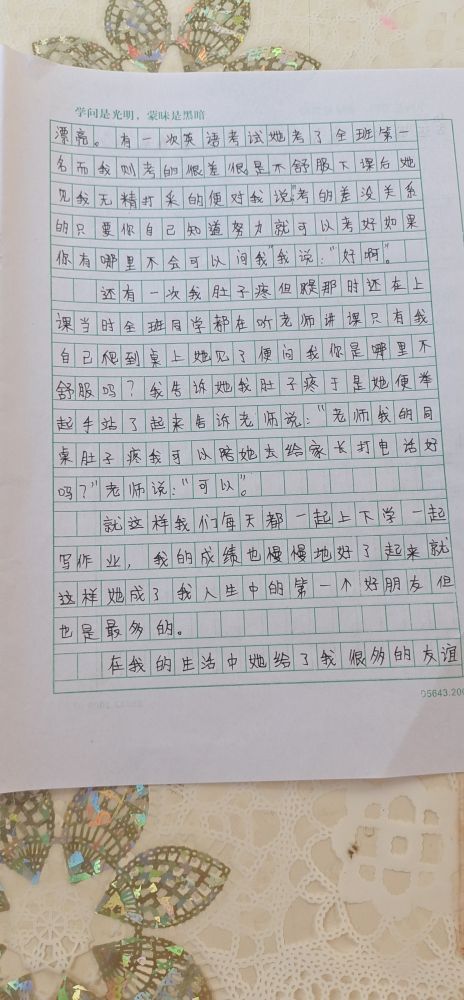 学问是光明，蒙昧是黑暗
漂亮。有一次英语考试她考了全班第一
名而我则考的很差很是不舒服下课后她
见我无精打采的便对我说"考的差没关系
的只要你自己知道努力就可以考好如果
你有哪里不会可以问我"我说:"好啊"。
还有一次我肚子疼但那时还在上
课当时全班同学都在听老师讲课只有我
自己爬到桌上她见了便问我你是哪里不
舒服吗?我告诉她我肚子疼于是她便举
起手站了起来告诉老师说:"老师我的同
桌肚子疼我可以陪她去给家长打电话好
吗?"老师说:"可以"。
就这样我们每天都一起上下学一起
写作业，我的成绩也慢慢地好了起来就
这样她成了我人生中的第一个好朋友但
也是最多的。
在我的生活中她给了我很多的友谊